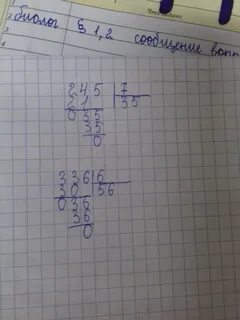 биолог § 1,2 сообщение
245 7
21 35
0 35
35
0
336 6
30 56
0 36
36
0